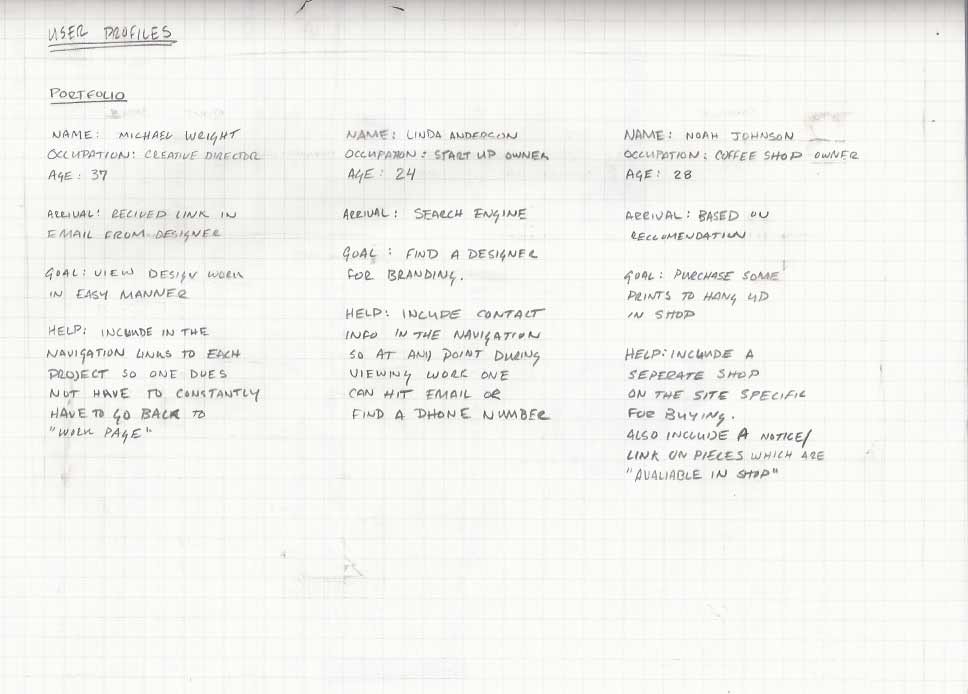 USER PROFILES
PORTFOLIO
NAME: MICHAEL WRIGHT
OCCUPATION: CREATIVE DIRECTOR
AGE: 37
ARRIVAL: RECIVED LINK IN
EMAIL FROM DESIGNER
GOAL: VIEW DESIGN WORK
IN EASY MANNER
HELP: INCLUDE IN THE
NAVIGATION LINKS TO EACH
PROJECT SO ONE DOES
NOT HAVE TO CONSTANTLY
HAVE TO GO BACK TO
"WORK PAGE"
NAME: LINDA ANDERSON
OCCUPATION: START UP OWNER
AGE: 24
ARRIVAL: SEARCH ENGINE
GOAL: FIND A DESIGNER
FOR BRANDING.
HELP: INCLUDE CONTACT
INFO IN THE NAVIGATION
SO AT ANY POINT DURING
VIEWING WORK ONE
CAN HIT EMAIL OR
FIND A PHONE NUMBER
NAME: NOAH JOHNSON
OCCUPATION: COFFEE SHOP OWNER
AGE: 28
ARRIVAL: BASED ON
RECCOMENDATION
GOAL: PURCHASE SOME
PRINTS TO HANG UP
IN SHOP
HELP: INCLUDE A
SEPERATE SHOP
ON THE SITE SPECIFIC
FOR BUYING.
ALSO INCLUDE A NOTICE/
LINK ON PIECES WHICH ARE
"AVALIABLE IN SHOP"